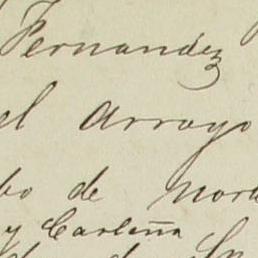 Fernandez
el Arroyo
bo de Mora
y Carleña